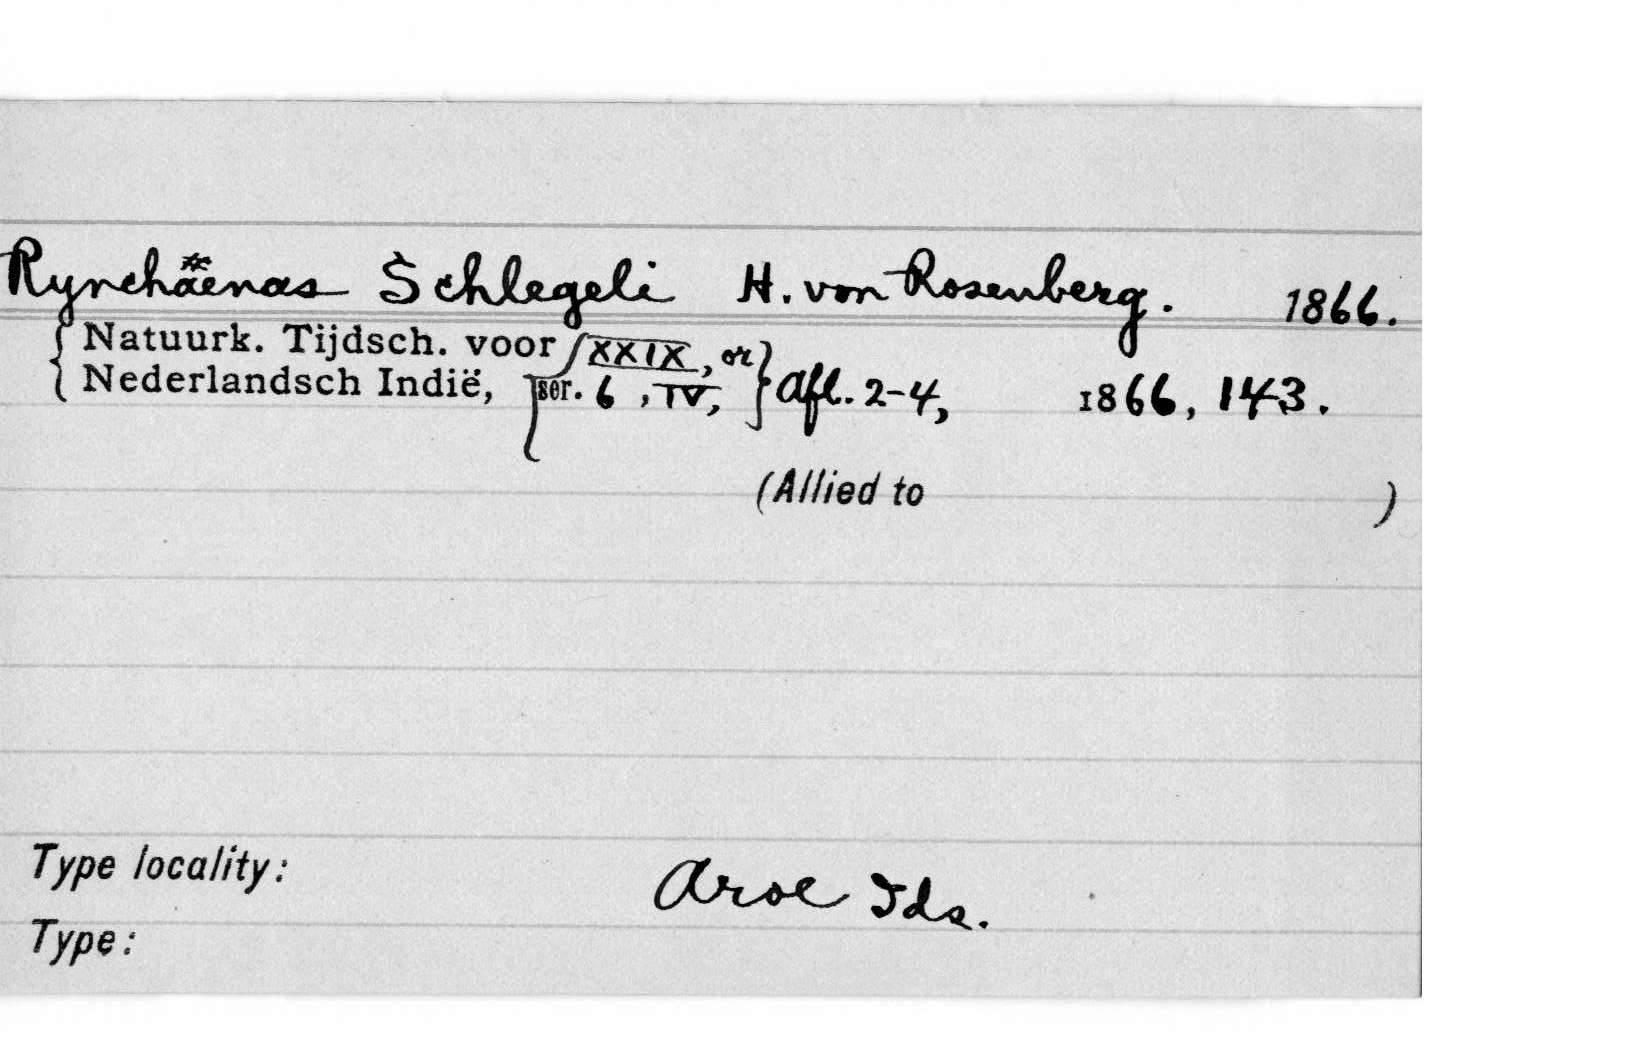 Rynchäenas Schlegeli H. von Rosenberg. 1866.
{ Natuurk. Tijdsch. voor { XXIX, or }
{ Nederlandsch Indië, { ser. 6, IV, } Afl. 2-4, 1866, 143.
(Allied to )
Type locality: Aroe Ids.
Type: